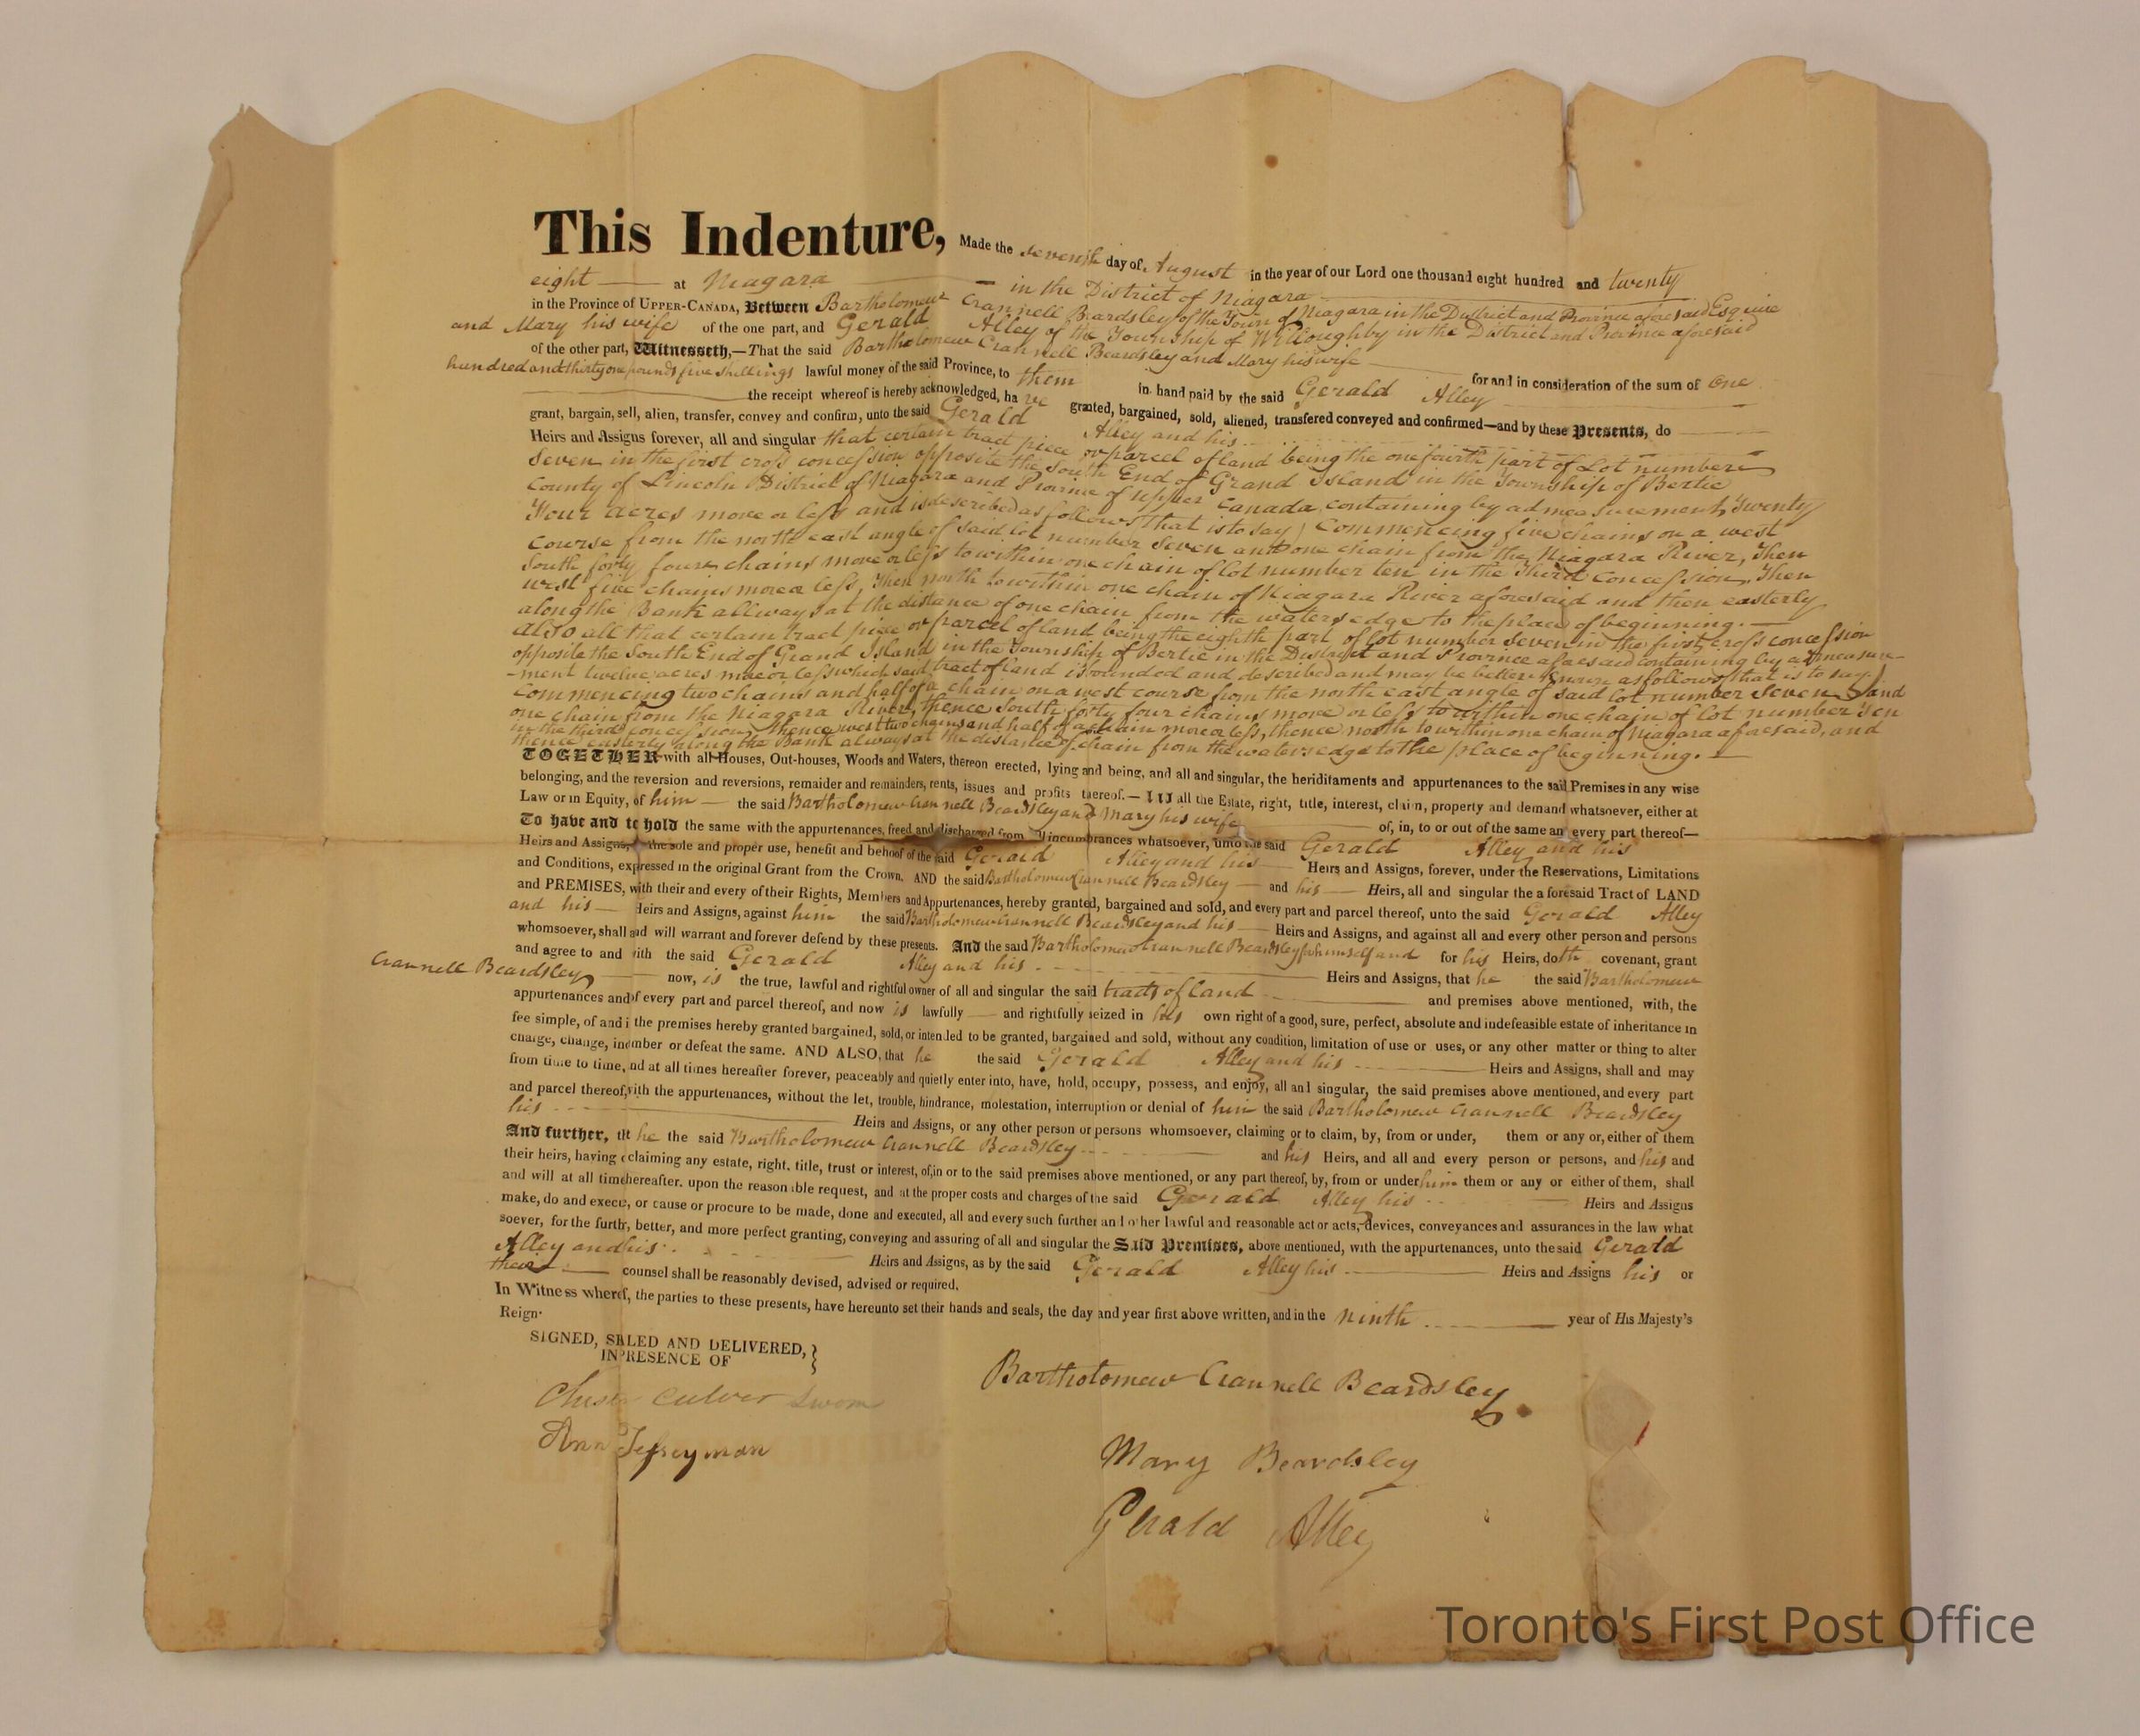 This Indenture, Made the seventh day of August in the year of our Lord one thousand eight hundred and twenty
eight at Niagara in the District of Niagara
in the Province of UPPER-CANADA, Between Bartholomew Crannell Beardsley of the Town of Niagara in the District and Province aforesaid Esquire
and Mary his wife of the one part, and Gerald Alley of the Township of Willoughby in the District and Province aforesaid
of the other part, Witnesseth,—That the said Bartholomew Crannell Beardsley and Mary his wife for and in consideration of the sum of One
hundred and thirty one pounds five shillings lawful money of the said Province, to them in hand paid by the said Gerald Alley
the receipt whereof is hereby acknowledged, ha ve granted, bargained, sold, aliened, transfered conveyed and confirmed—and by these Presents, do
grant, bargain, sell, alien, transfer, convey and confirm, unto the said Gerald Alley and his
Heirs and Assigns forever, all and singular that certain tract piece or parcel of land being the one fourth part of Lot number
Seven in the first cross concession opposite the South End of Grand Island in the Township of Bertie
County of Lincoln District of Niagara and Province of Upper Canada, containing by admeasurement, Twenty
Four acres more or less and is described as follows (that is to say) Commencing five chains on a west
course from the north east angle of said lot number Seven and one chain from the Niagara River, Then
South forty four chains more or less to within one chain of lot number ten in the Third Concession, Then
west five chains more or less, Then north to within one chain of Niagara River aforesaid and then easterly
along the Bank allways at the distance of one chain from the waters edge to the place of beginning.—
Also all that certain tract piece or parcel of land being the eighth part of lot number Seven in the first cross concession
opposite the South End of Grand Island in the Township of Bertie in the District and Province aforesaid containing by admeasure-
-ment twelve acres more or less which said tract of land is bounded and described and may be better known as follows, that is to say.
Commencing two chains and half of a chain on a west course from the north east angle of said lot number Seven and
one chain from the Niagara River, thence South forty four chains more or less to within one chain of lot number Ten
in the third concession, thence west two chains and half of a chain more or less, thence north to within one chain of Niagara aforesaid, and
thence easterly along the Bank always at the distance of chain from the waters edge to the place of beginning.—
TOGETHER with all Houses, Out-houses, Woods and Waters, thereon erected, lying and being, and all and singular, the heriditaments and appurtenances to the said Premises in any wise
belonging, and the reversion and reversions, remaider and remainders, rents, issues and profits thereof.— all the Estate, right, title, interest, claim, property and demand whatsoever, either at
Law or in Equity, of him the said Bartholomew Crannell Beardsley and Mary his wife of, in, to or out of the same an every part thereof—
To have and to hold the same with the appurtenances, freed and discharged from incumbrances whatsoever, unto the said Gerald Alley and his
Heirs and Assigns, the sole and proper use, benefit and behoof of the said Gerald Alley and his Heirs and Assigns, forever, under the Reservations, Limitations
and Conditions, expressed in the original Grant from the Crown. AND the said Bartholomew Crannell Beardsley and his Heirs, all and singular the a foresaid Tract of LAND
and PREMISES, with their and every of their Rights, Members and Appurtenances, hereby granted, bargained and sold, and every part and parcel thereof, unto the said Gerald Alley
and his Heirs and Assigns, against him the said Bartholomew Crannell Beardsley and his Heirs and Assigns, and against all and every other person and persons
whomsoever, shall and will warrant and forever defend by these presents. And the said Bartholomew Crannell Beardsley for himself and for his Heirs, doth covenant, grant
and agree to and with the said Gerald Alley and his Heirs and Assigns, that he the said Bartholomew
Crannell Beardsley now, is the true, lawful and rightful owner of all and singular the said tracts of land and premises above mentioned, with, the
appurtenances and of every part and parcel thereof, and now is lawfully and rightfully seized in his own right of a good, sure, perfect, absolute and indefeasible estate of inheritance in
fee simple, of and i the premises hereby granted bargained, sold, or intended to be granted, bargained and sold, without any condition, limitation of use or uses, or any other matter or thing to alter
charge, change, incumber or defeat the same. AND ALSO, that he the said Gerald Alley and his Heirs and Assigns, shall and may
from time to time, nd at all times hereafter forever, peaceably and quietly enter into, have, hold, occupy, possess, and enjoy, all and singular, the said premises above mentioned, and every part
and parcel thereof, with the appurtenances, without the let, trouble, hindrance, molestation, interruption or denial of him the said Bartholomew Crannell Beardsley
his Heirs and Assigns, or any other person or persons whomsoever, claiming or to claim, by, from or under, them or any or, either of them
And further, that he the said Bartholomew Crannell Beardsley and his Heirs, and all and every person or persons, and his and
their heirs, having claiming any estate, right, title, trust or interest, of, in or to the said premises above mentioned, or any part thereof, by, from or under him them or any or either of them, shall
and will at all times hereafter. upon the reasonable request, and at the proper costs and charges of the said Gerald Alley his Heirs and Assigns
make, do and execute, or cause or procure to be made, done and executed, all and every such further and other lawful and reasonable act or acts, devices, conveyances and assurances in the law what
soever, for the further, better, and more perfect granting, conveying and assuring of all and singular the Said Premises, above mentioned, with the appurtenances, unto the said Gerald
Alley and his Heirs and Assigns, as by the said Gerald Alley his Heirs and Assigns his or
their counsel shall be reasonably devised, advised or required.
In Witness whereof, the parties to these presents, have hereunto set their hands and seals, the day and year first above written, and in the ninth year of His Majesty's
Reign.
SIGNED, SEALED AND DELIVERED,
IN PRESENCE OF
Bartholomew Crannell Beardsley
Culver Sworn
Ann Jesseyman
Mary Beardsley
Gerald Alley
Toronto's First Post Office